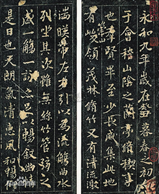 永和九年歲在癸丑暮春之初會
于會稽山陰之蘭亭脩稧事
也羣賢畢至少長咸集此地
有崇山峻領茂林脩竹又有清流激
湍暎帶左右引以為流觴曲水
列坐其次雖無絲竹管弦之
盛一觴一詠亦足以暢敘幽情
是日也天朗氣清惠風和暢